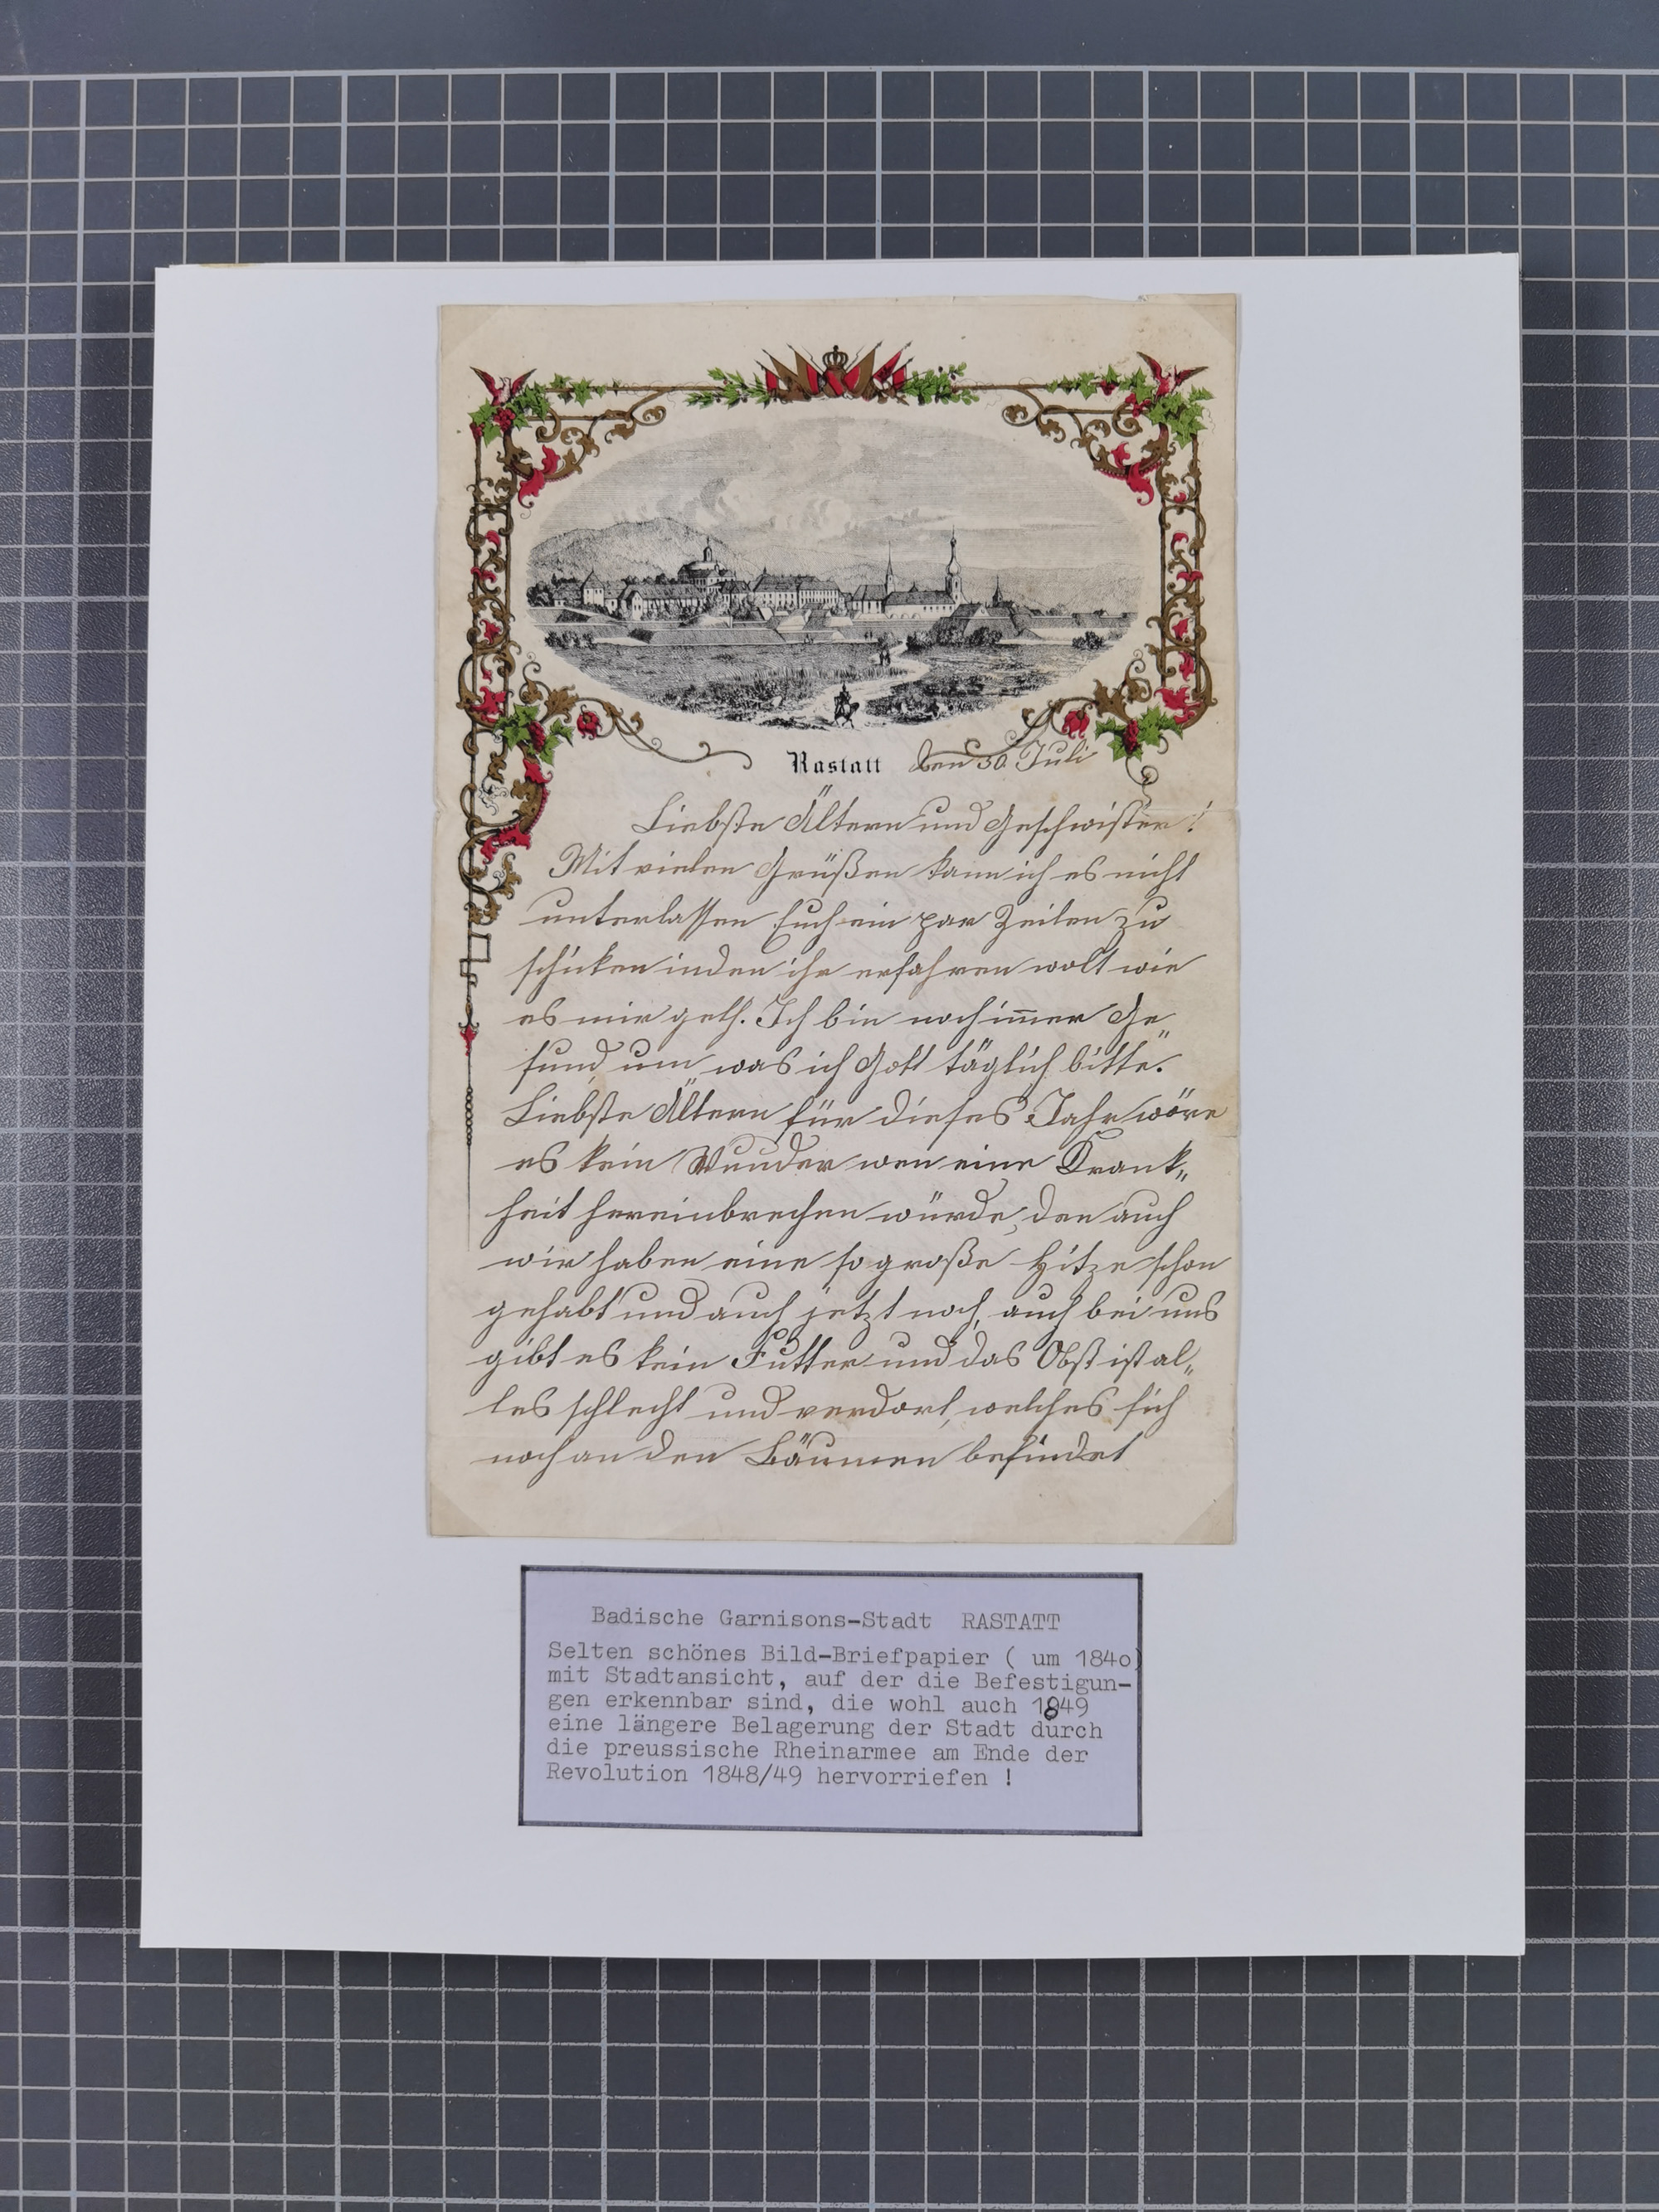 Rastatt den 30. Juli
Liebste Ältern und Geschwister!
Mit vielen Grüßen kann ich es nicht
unterlassen Euch ein par Zeilen zu
schicken inden ihr erfahren wolt wie
es mir geth. Ich bin noch im̅er Ge„
sund, um was ich Gott täglich bitte.
Liebste Ältern für dieses Jahr wöre
es kein Wunder wen eine Krank„
heit hereinbrechen würde, den auch
wir haben eine so große Hitze schon
gehabt und auch jetzt noch, auch bei uns
gibt es kein Futter und das Obst ist al„
les schlecht und verdort, welches sich
noch an den Bäumen befindet
Badische Garnisons-Stadt RASTATT
Selten schönes Bild-Briefpapier ( um 184o)
mit Stadtansicht, auf der die Befestigun-
gen erkennbar sind, die wohl auch 1849
eine längere Belagerung der Stadt durch
die preussische Rheinarmee am Ende der
Revolution 1848/49 hervorriefen !